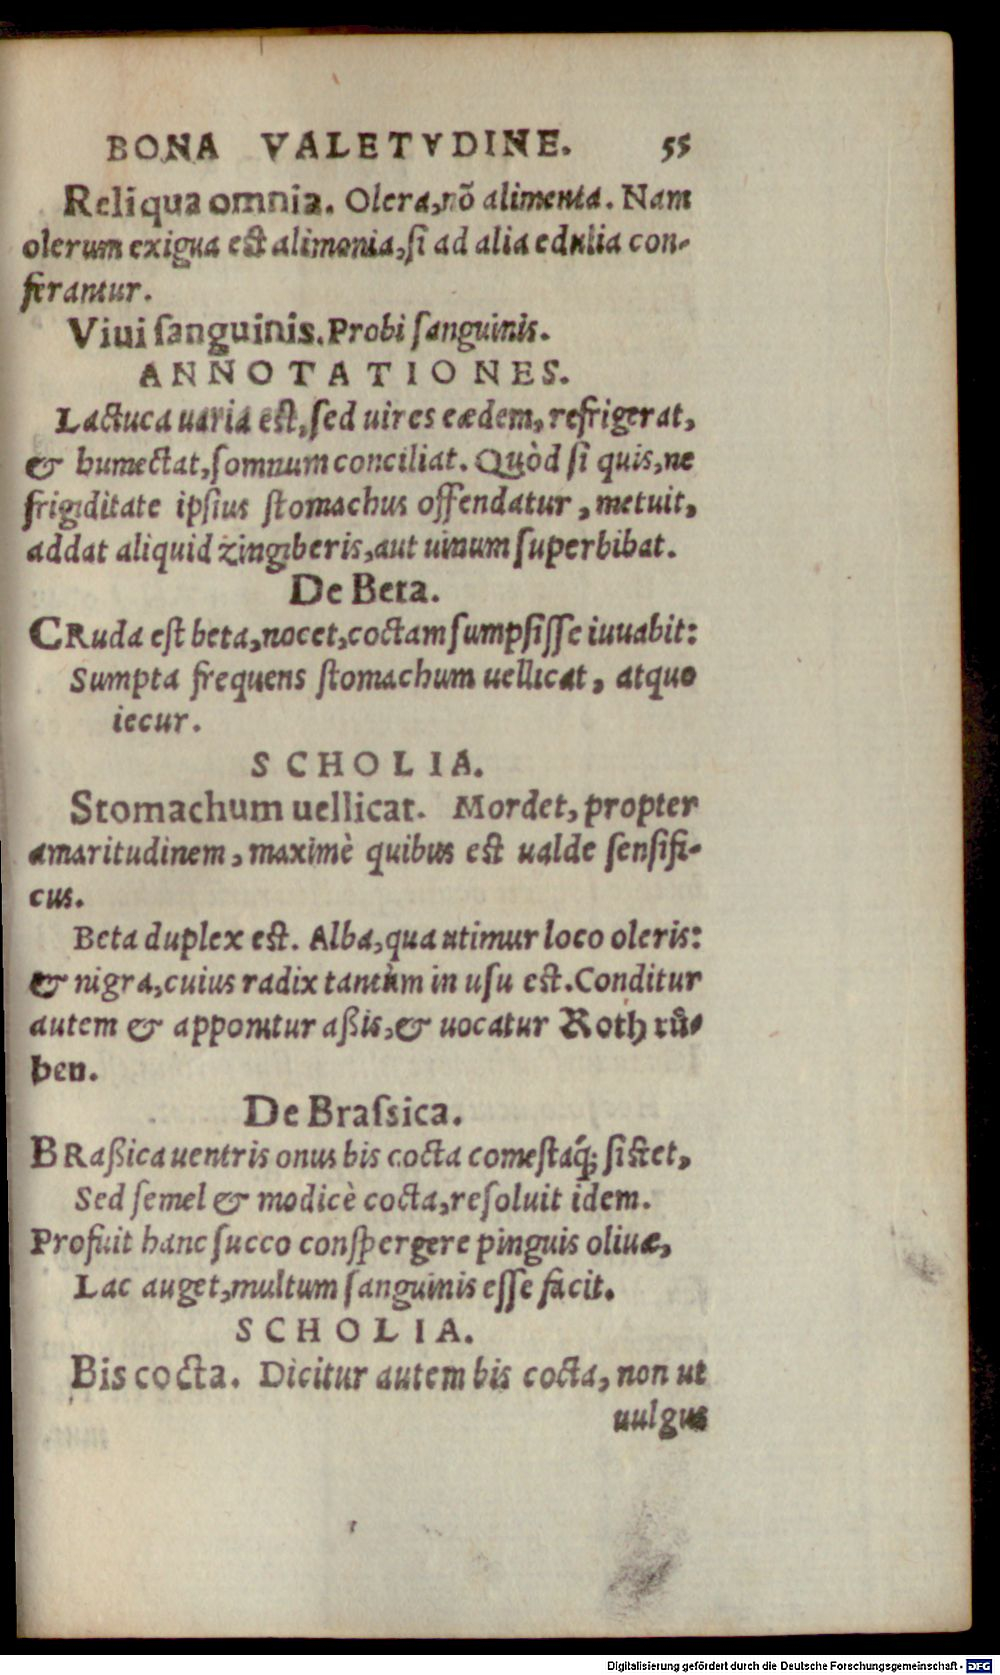 BONA VALETVDINE. 55
Reliqua omnia. Olera, nõ alimenta. Nam
olerum exigua est alimonia, ſi ad alia edulia con-
ferantur.
Viui ſanguinis. Probi ſanguinis.
ANNOTATIONES.
Lactuca uaria est, ſed uires eædem, refrigerat,
& humectat, ſomnum conciliat. Quòd ſi quis, ne
frigiditate ipſius ſtomachus offendatur, metuit,
addat aliquid zingiberis, aut uinum ſuperbibat.
De Beta.
CRuda eſt beta, nocet, coctam ſumpſiſſe iuuabit:
Sumpta frequens ſtomachum uellicat, atque
iecur.
SCHOLIA.
Stomachum uellicat. Mordet, propter
amaritudinem, maximè quibus est ualde ſenſifi-
cus.
Beta duplex est. Alba, qua utimur loco oleris:
& nigra, cuius radix tantùm in uſu est. Conditur
autem & apponitur aßis, & uocatur Roth růͤ-
ben.
De Braſsica.
BRaßica uentris onus bis cocta comeſtaq́; ſistet,
Sed ſemel & modicè cocta, reſoluit idem.
Profuit hanc ſucco conſpergere pinguis oliuæ,
Lac auget, multum ſanguinis eſſe facit.
SCHOLIA.
Bis cocta. Dicitur autem bis cocta, non ut
uulgus
Digitalisierung gefördert durch die Deutsche Forschungsgemeinschaft - DFG